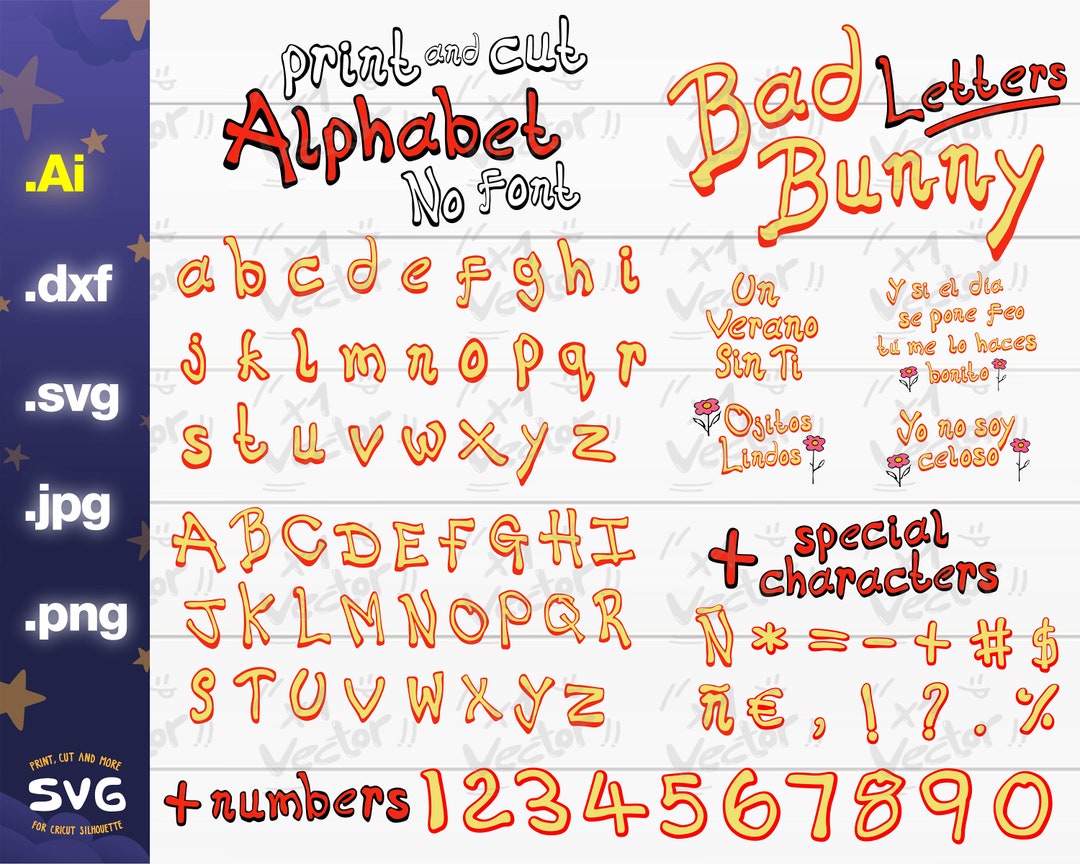 .Ai
.dxf
.svg
.jpg
.png
PRINT, CUT AND MORE
SVG
FOR CRICUT SILHOUETTE
print and cut
Alphabet
No font
Bad Letters
Bunny
a b c d e f g h i
j k l m n o p q r
s t u v w x y z
A B C D E F G H I
J K L M N O P Q R
S T U V W X Y Z
Un
Verano
Sin Ti
Y si el día
se pone feo
tú me lo haces
bonito
Ojitos
Lindos
Yo no soy
celoso
+ special
characters
Ñ * = - + # $
ñ € , ! ? . %
+ numbers 1 2 3 4 5 6 7 8 9 0
x1
Vector